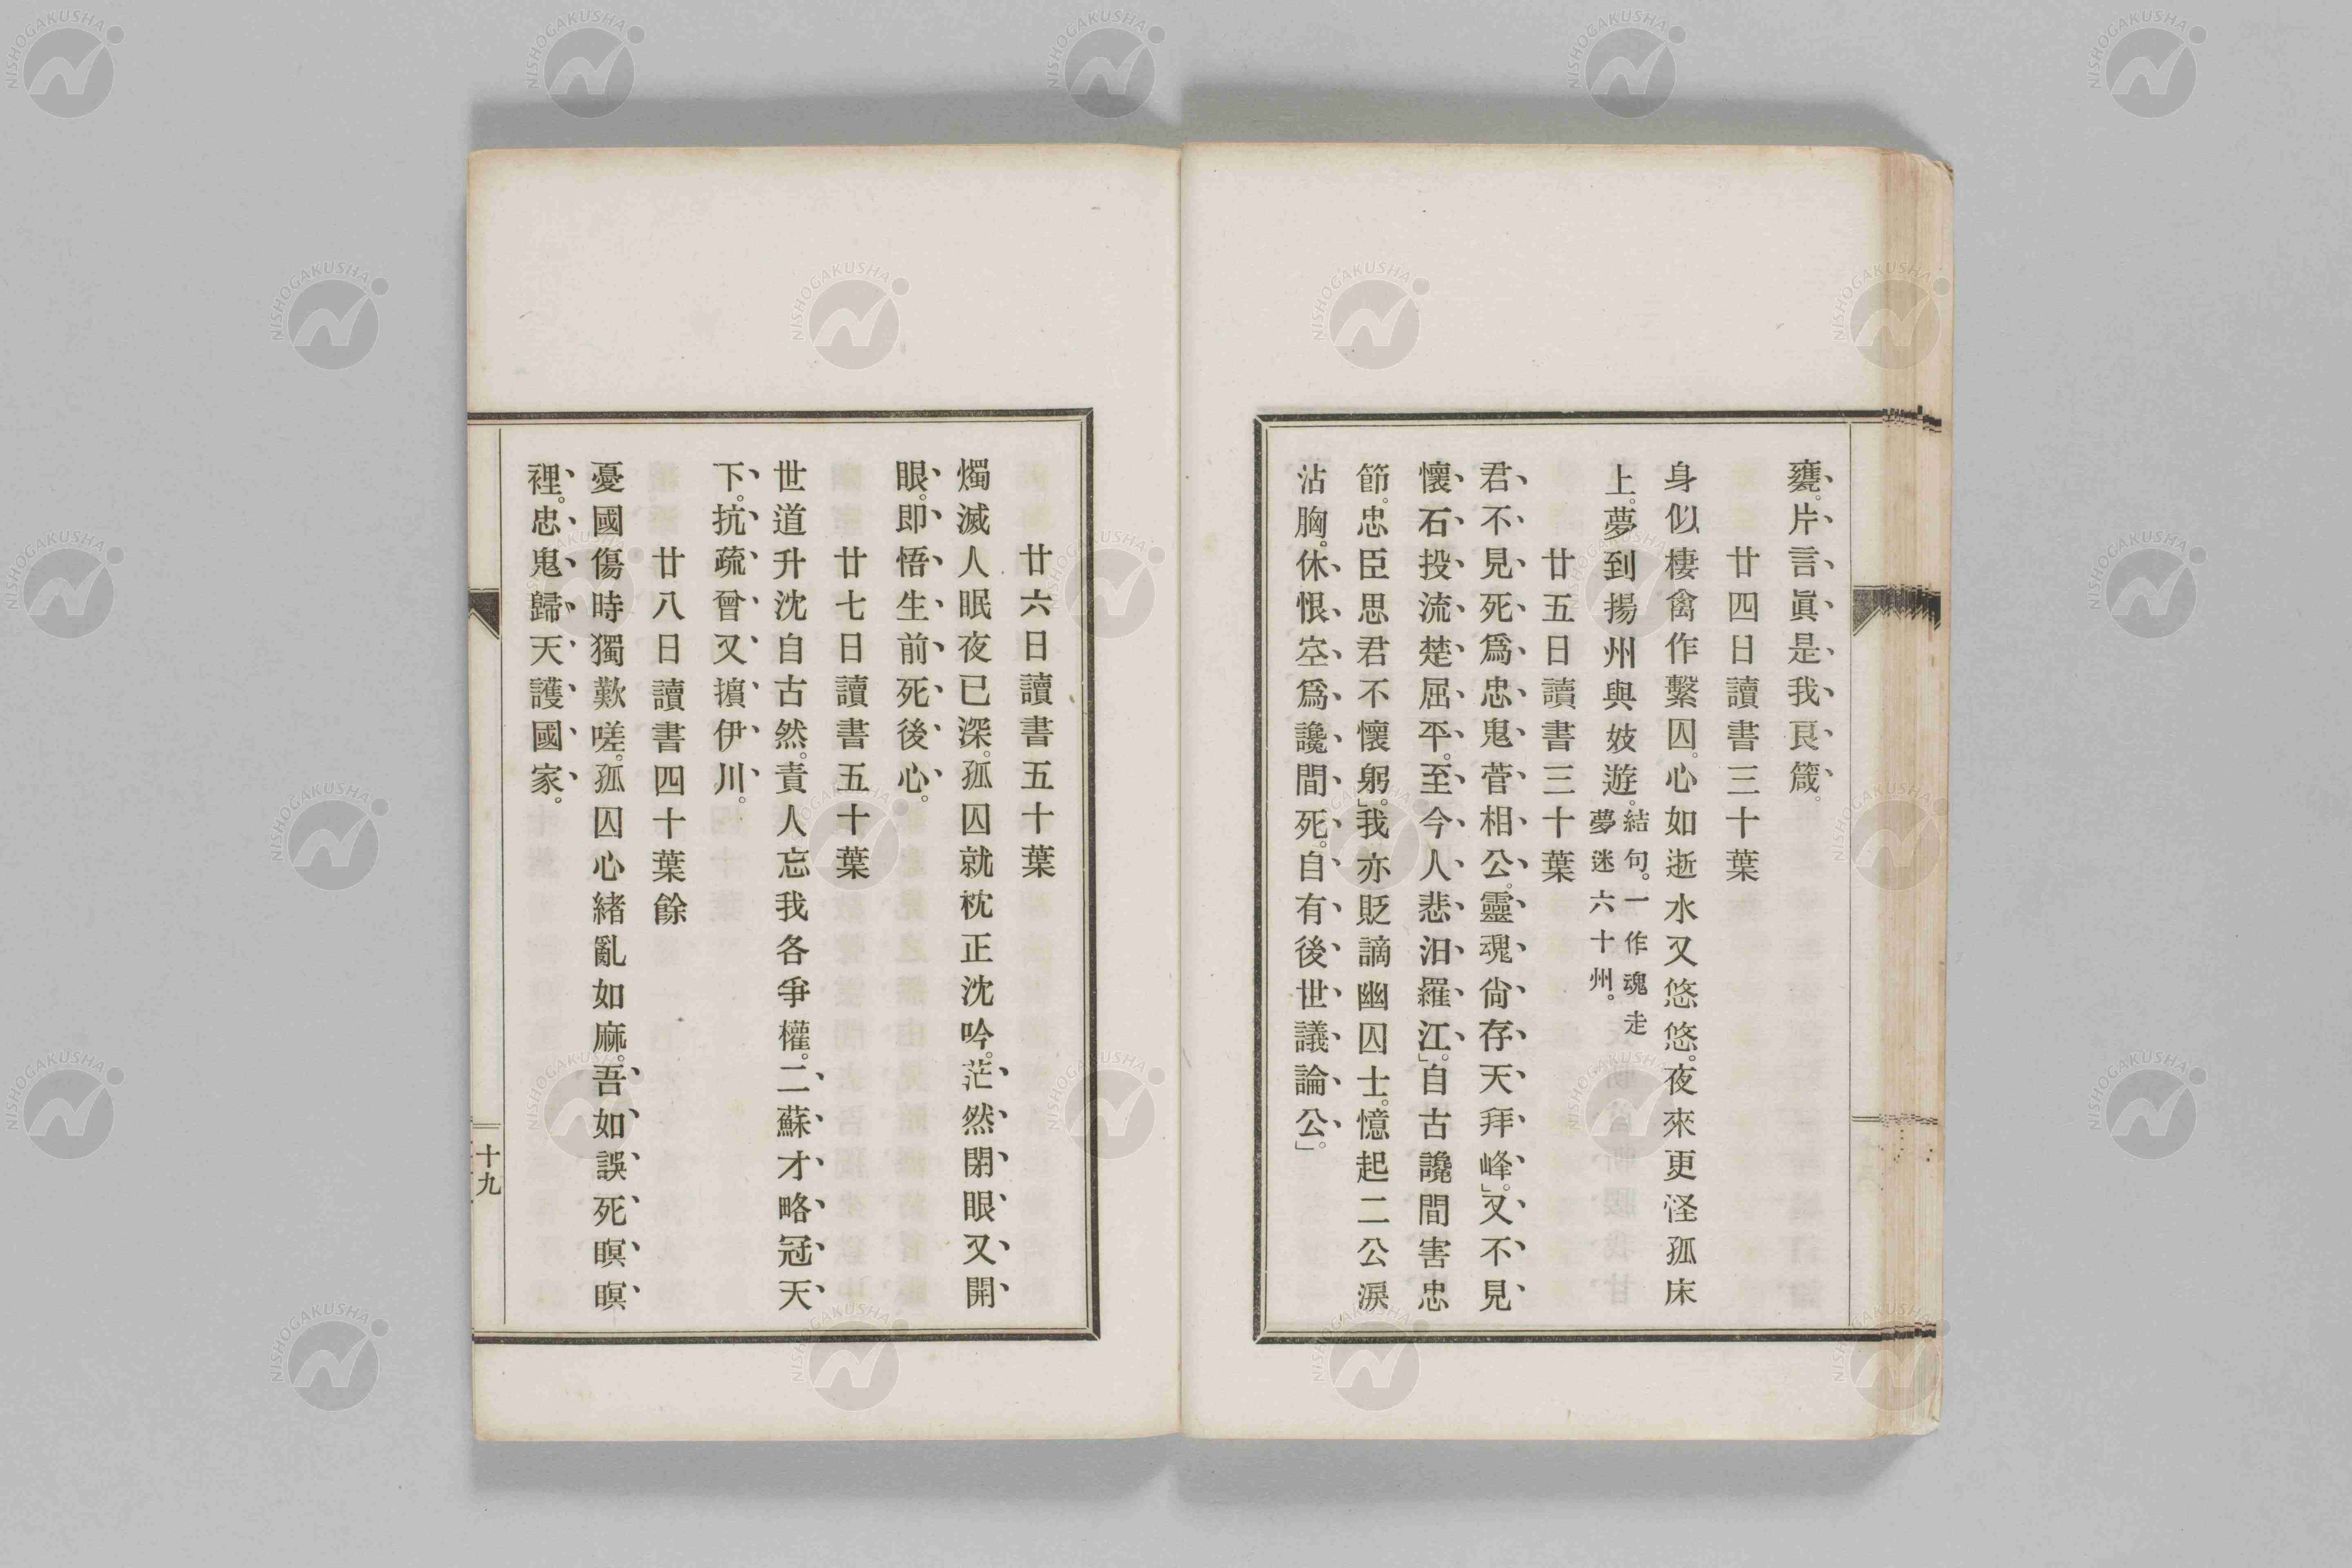 甕。片言眞是我良箴。
廿四日讀書三十葉
身似棲禽作繫囚。心如逝水又悠悠。夜來更怪孤床
上。夢到揚州與妓遊。結句。一作魂走夢迷六十州。
廿五日讀書三十葉
君不見死爲忠鬼菅相公。靈魂尙存天拜峰。」又不見
懷石投流楚屈平。至今人悲汨羅江。」自古讒間害忠
節。忠臣思君不懷躬。」我亦貶謫幽囚士。憶起二公淚
沾胸。休恨空爲讒間死。自有後世議論公。」
廿六日讀書五十葉
燭滅人眠夜已深。孤囚就枕正沈吟。茫然閉眼又開
眼。即悟生前死後心。
廿七日讀書五十葉
世道升沈自古然。責人忘我各爭權。二蘇才略冠天
下。抗疏曾又擯伊川。
廿八日讀書四十葉餘
憂國傷時獨歎嗟。孤囚心緒亂如麻。吾如誤死瞑瞑
裡。忠鬼歸天護國家。
十九
NISHOGAKUSHA